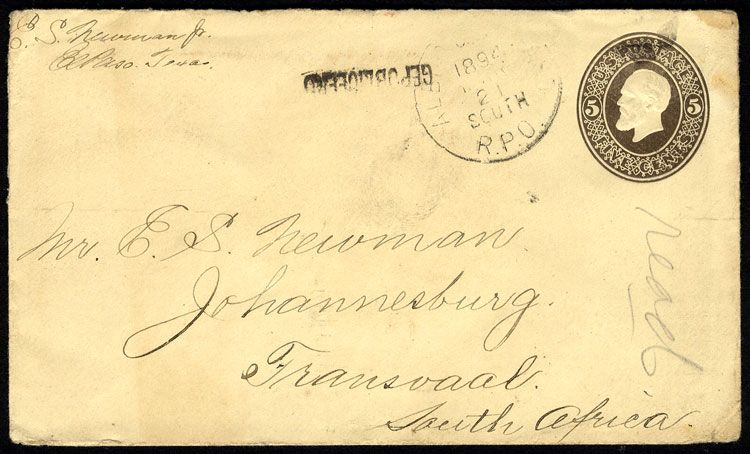 E. S. Newman Jr.
El Paso, Texas.
GEPUBLICEERD
1894
21
SOUTH
R.P.O.
5 5
CENTS
Mr. E. S. Newman
Johannesburg.
Transvaal.
South Africa.